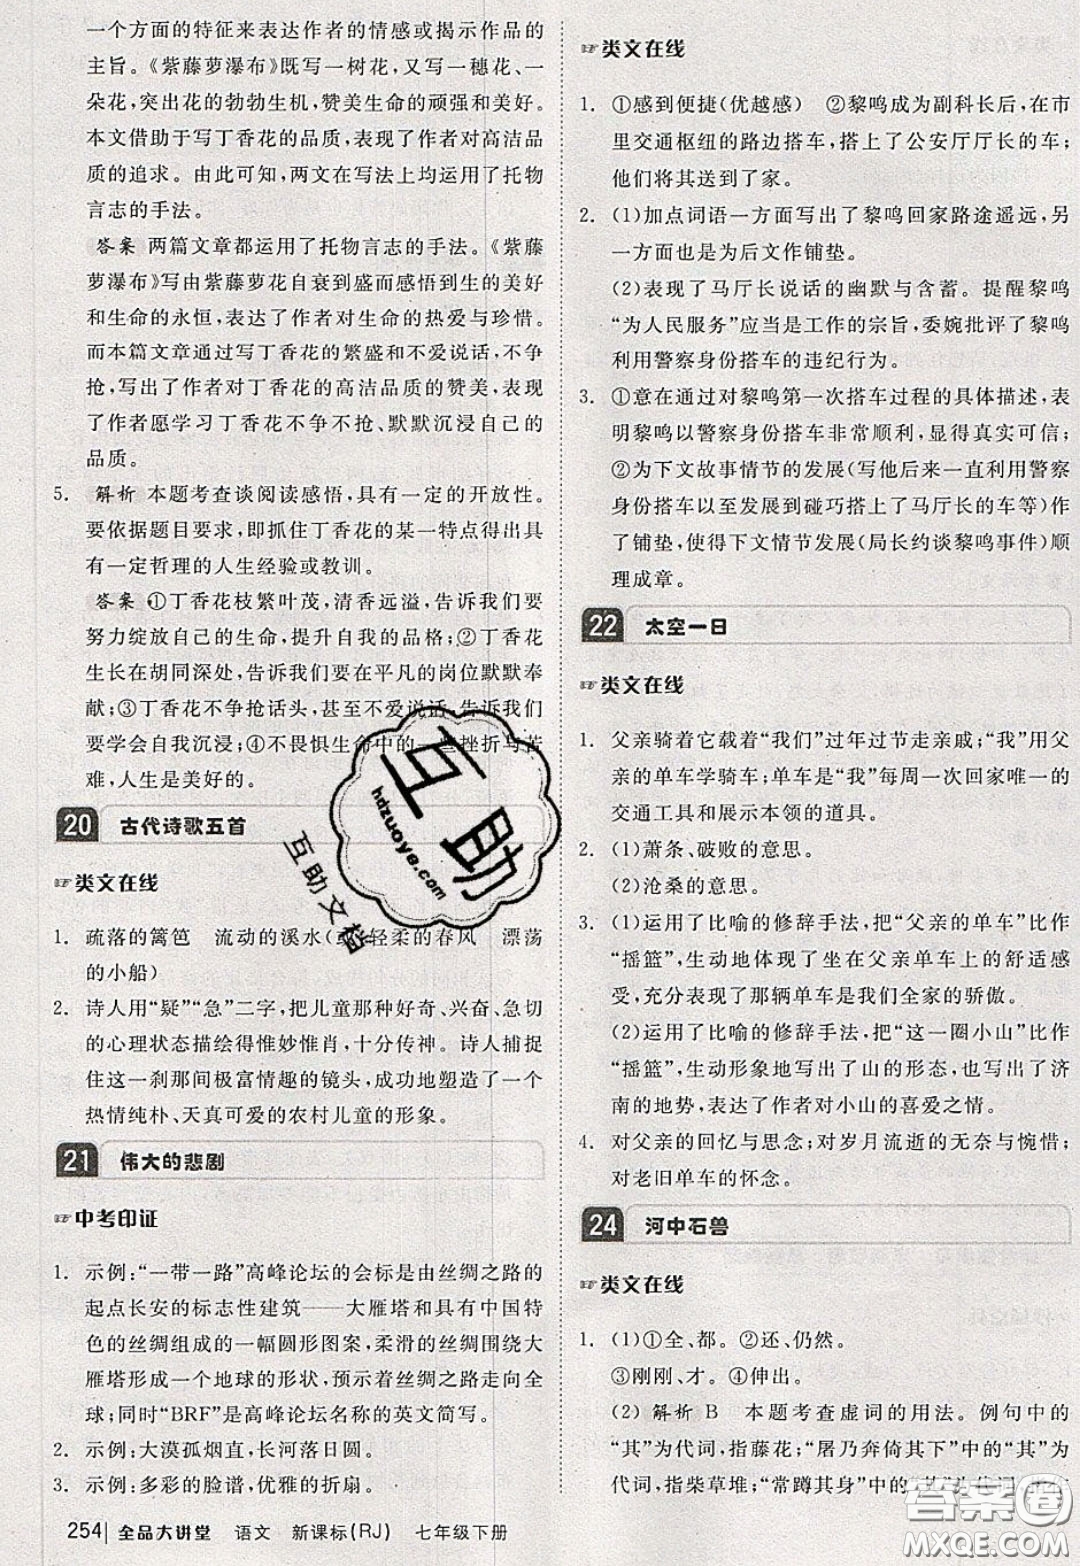 一个方面的特征来表达作者的情感或揭示作品的
主旨。《紫藤萝瀑布》既写一树花,又写一穗花、一
朵花,突出花的勃勃生机,赞美生命的顽强和美好。
本文借助于写丁香花的品质,表现了作者对高洁品
质的追求。由此可知,两文在写法上均运用了托物
言志的手法。
答案 两篇文章都运用了托物言志的手法。《紫藤
萝瀑布》写由紫藤萝花自衰到盛而感悟到生的美好
和生命的永恒,表达了作者对生命的热爱与珍惜。
而本篇文章通过写丁香花的繁盛和不爱说话,不争
抢,写出了作者对丁香花的高洁品质的赞美,表现
了作者愿学习丁香花不争不抢、默默沉浸自己的
品质。
5. 解析 本题考查谈阅读感悟,具有一定的开放性。
要依据题目要求,即抓住丁香花的某一特点得出具
有一定哲理的人生经验或教训。
答案 ①丁香花枝繁叶茂,清香远溢,告诉我们要
努力绽放自己的生命,提升自我的品格;②丁香花
生长在胡同深处,告诉我们要在平凡的岗位默默奉
献;③丁香花不争抢话头,甚至不爱说话,告诉我们
要学会自我沉浸;④不畏惧生命中的一些挫折与苦
难,人生是美好的。
20 古代诗歌五首
类文在线
1. 疏落的篱笆 流动的溪水(或轻柔的春风 漂荡
的小船)
2. 诗人用“疑”“急”二字,把儿童那种好奇、兴奋、急切
的心理状态描绘得惟妙惟肖,十分传神。诗人捕捉
住这一刹那间极富情趣的镜头,成功地塑造了一个
热情纯朴、天真可爱的农村儿童的形象。
21 伟大的悲剧
中考印证
1. 示例:“一带一路”高峰论坛的会标是由丝绸之路的
起点长安的标志性建筑——大雁塔和具有中国特
色的丝绸组成的一幅圆形图案,柔滑的丝绸围绕大
雁塔形成了一个地球的形状,预示着丝绸之路走向全
球;同时“BRF”是高峰论坛名称的英文简写。
2. 示例:大漠孤烟直,长河落日圆。
3. 示例:多彩的脸谱,优雅的折扇。
254 全品大讲堂 语文 新课标(RJ) 七年级下册
类文在线
1. ①感到便捷(优越感) ②黎鸣成为副科长后,在市
里交通枢纽的路边搭车,搭上了公安厅厅长的车;
他们将其送到了家。
2. (1)加点词语一方面写出了黎鸣回家路途遥远,另
一方面也是为后文作铺垫。
(2)表现了马厅长说话的幽默与含蓄。提醒黎鸣
“为人民服务”应当是工作的宗旨,委婉批评了黎鸣
利用警察身份搭车的违纪行为。
3. ①意在通过对黎鸣第一次搭车过程的具体描述,表
明黎鸣以警察身份搭车非常顺利,显得真实可信;
②为下文故事情节的发展(写他后来一直利用警察
身份搭车以至发展到碰巧搭了马厅长的车等)作
了铺垫,使得下文情节发展(局长约谈黎鸣事件)顺
理成章。
22 太空一日
类文在线
1. 父亲骑着它载着“我们”过年过节走亲戚;“我”用父
亲的单车学骑车;单车是“我”每周一次回家唯一的
交通工具和展示本领的道具。
2. (1)萧条、破败的意思。
(2)沧桑的意思。
3. (1)运用了比喻的修辞手法,把“父亲的单车”比作
“摇篮”,生动地体现了坐在父亲单车上的舒适感
受,充分表现了那辆单车是我们全家的骄傲。
(2)运用了比喻的修辞手法,把“这一圈小山”比作
“摇篮”,生动形象地写出了山的形态,也写出了济
南的地势,表达了作者对小山的喜爱之情。
4. 对父亲的回忆与思念;对岁月流逝的无奈与惋惜;
对老旧单车的怀念。
24 河中石兽
类文在线
1. (1)①全、都。②还、仍然。
③刚刚、才。④伸出。
(2) 解析 B 本题考查虚词的用法。例句中的
“其”为代词,指藤花;“屠乃奔倚其下”中的“其”为
代词,指柴草堆;“常蹲其身”中的“其”为代词
互助
hdzuoye.com
互助文档
答案圈